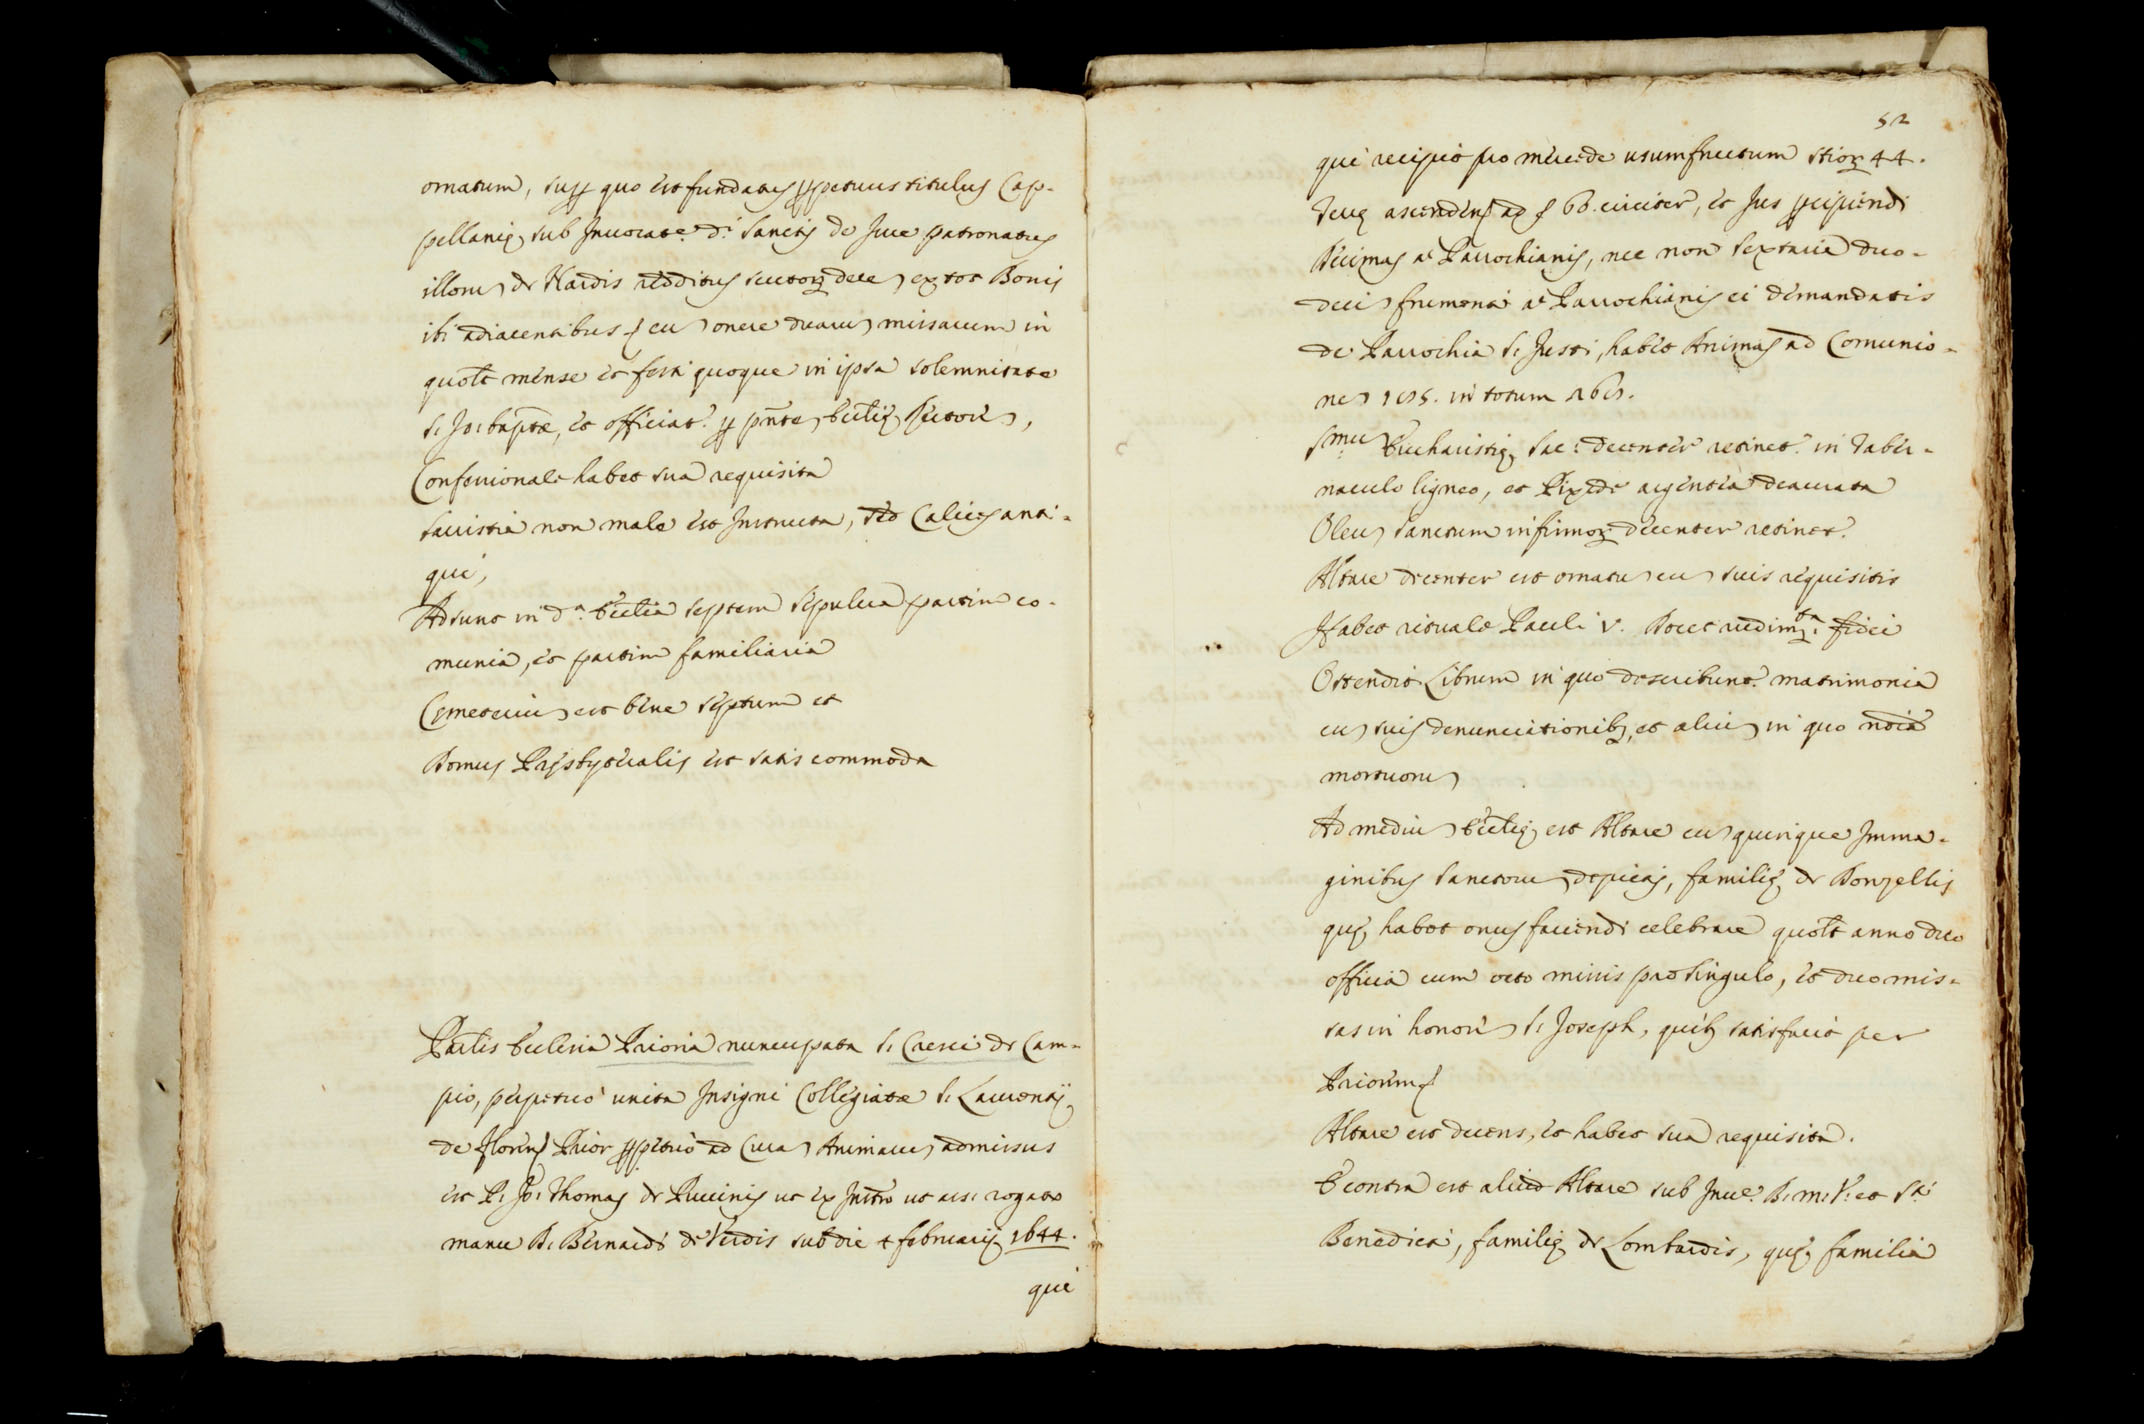 ornatum, sup quo est fundatus perpetuus titulus Cap-
pellanię sub Invocat.e d.i Sancti de Jure patronatus
illoru de Nardis redditus scutorum dece, ex tot Bonis
ibi adiacentibus, cu onere duaru missarum in
quolt mense et festa quoque in ipsa solemnitate
S. Jo: baptæ, et officiat.r p pnte, Ecclię Rectore,
Confessionale habet sua requisita
Sacristia non male est Instructa, sed Calices anti-
qui,
Adsunt in d.a Ecclia septem sepulcra partim co-
munia, et partim familiaria
Cemeteriu est bene septum et
Domus Presbyteralis est satis commoda
Parlis Ecclesia Prioria nuncupata S. Cresci de Cam-
pio, perpetuo unita Insigni Collegiatæ S. Laurentij
de Florin Prior perpetuo ad Cura Animaru admissus
est P. Jo: Thomas de Puccinis ut ex Instro ut asse: rogato
manu D. Bernardi de Verdis sub die 4 februarij 1644.
qui
52
qui recipit pro mercede usumfructum stior 44.
Terre ascenden ad 60 circiter, et Jus percipiendi
Decimas a Parrochianis, nec non sextaria duo-
deci frumenti a Parrochianis ei demandatis
de Parrochia S. Justi, habet Animas ad Comunio-
ne 195. in totum 260.
Smu Eucharistię Sac: decenter retinet.r in Taber-
naculo ligneo, et Pixide argentea deaurata
Oleu Sanctum infirmor decenter retinet.r
Altare decenter est ornatu cu suis requisitis
Habet rituale Pauli V. Docet rudim.ta fidei
Ostendit Librum in quo describunt.r matrimonia
cu suis denunciationib, et aliu in quo noia
mortuoru
Ad mediu Eccleę est Altare cu quinque Imma-
ginibus Sanctoru depictis, familię de Donzellis
quę habet onus faciendi celebrare quolt anno duo
officia cum octo missis pro singulo, et duo mis-
sas in honore S. Joseph, quib satisfacit per
Priorem
Altare est decens, et habet sua requisita.
E contra est aliud Altare sub Inue. B. M. V. et S.ti
Benedicti, familię de Lombardis, quę familia